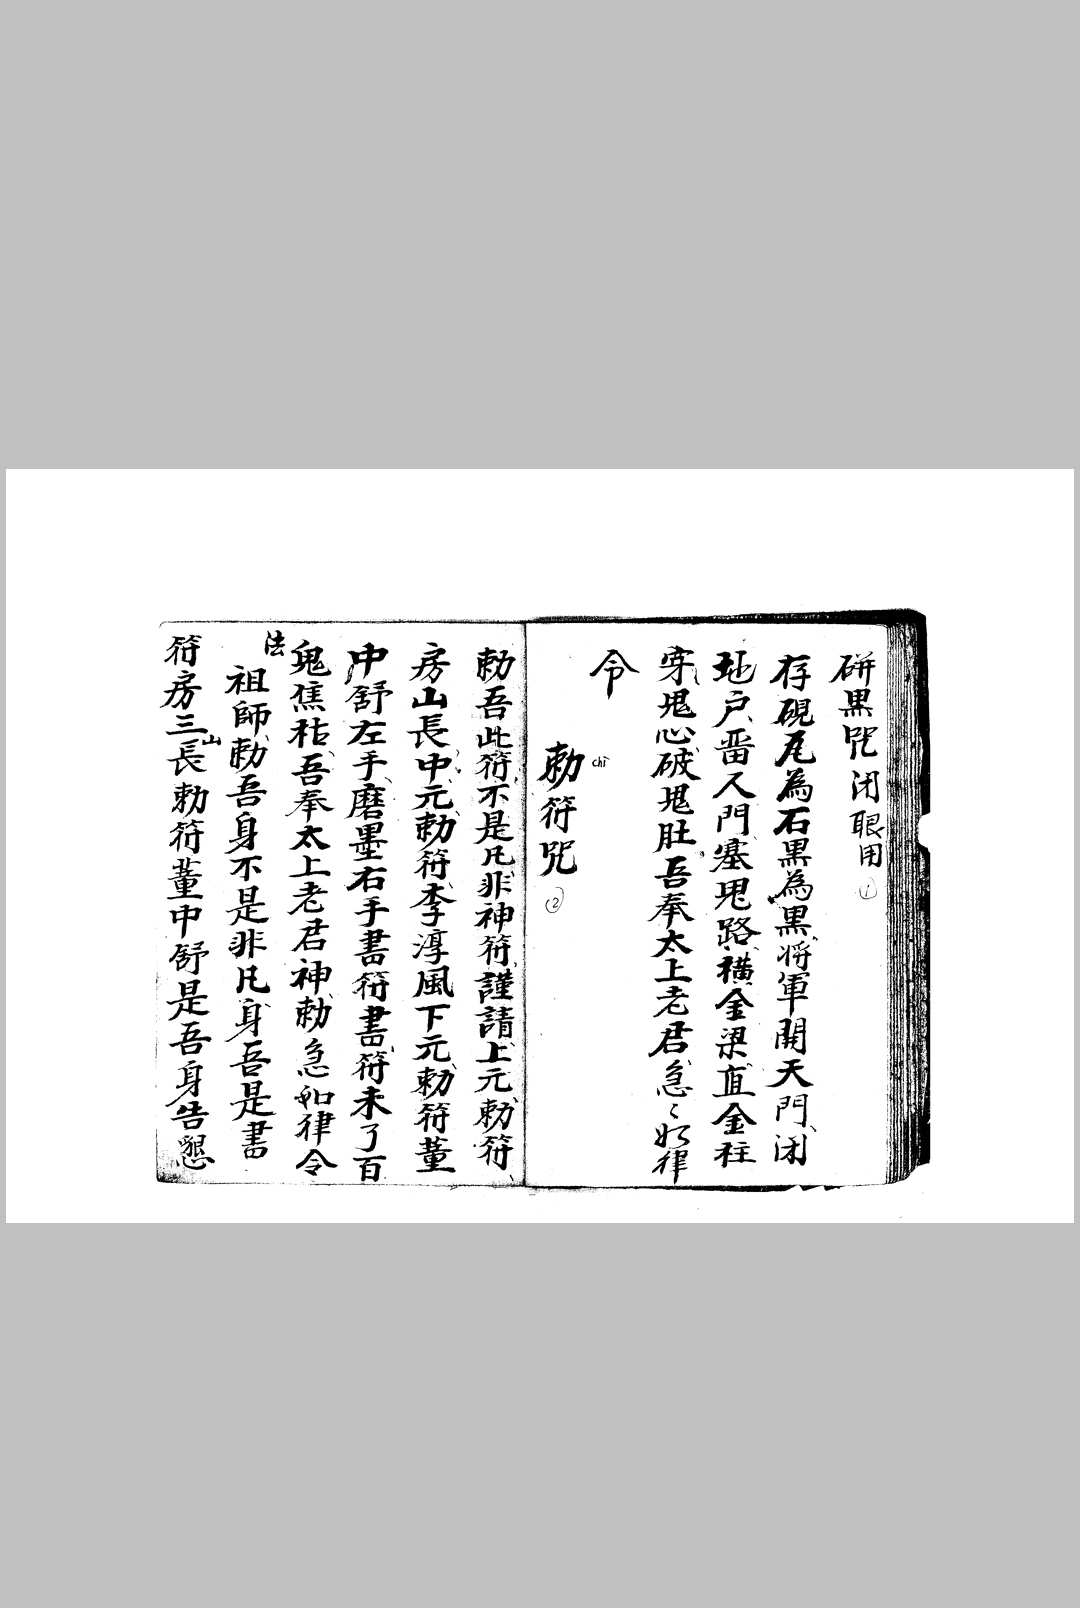 研黑咒闭眼用 ①
存硯瓦為石黑為黑将軍開天門闭
地户畱人門塞鬼路橫金梁直金柱
穿鬼心破鬼肚吾奉太上老君急〻如律
令
勅符咒 ② chī
勅吾此符不是凡非神符謹請上元勅符
房山長中元勅符李淳風下元勅符董
中舒左手磨墨右手書符書符未了百
鬼焦枯吾奉太上老君神勅急如律令
法祖師勅吾身不是非凡身吾是書
符房三山長勅符董中舒是吾身告懇